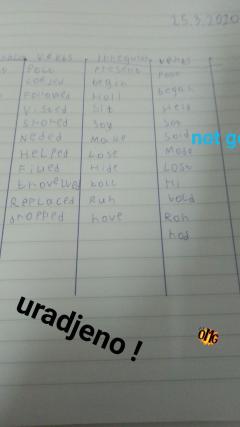 25.3.2020
verbs Irregular verbs
Past present Past
begin began
Followed Hold Held
Visted Sit Sat
shared Say Said
Neded Make Made
Helped Lose Lost
Filled Hide Hi
travelled told
Replaced Run Ran
dropped have had
not go
uradjeno !
OMG